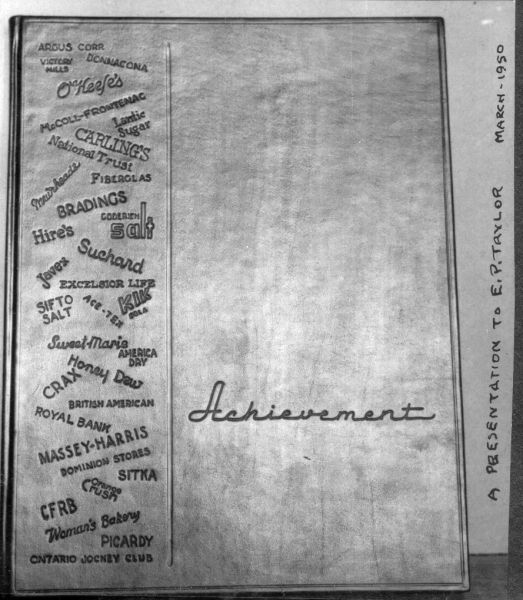 ARGUS CORR
VICTORY
MILLS
DONNACONA
O'Keefe's
McCOLL-FRONTENAC
Lantic
Sugar
CARLING'S
National Trust
Muirheads
FIBERGLAS
BRADINGS
GODERICH
salt
Hire's
Suchard
Javex
EXCELSIOR LIFE
SIFTO
SALT
ACE-TEX
KIK
COLA
Sweet Marie
AMERICA
DRY
Honey Dew
CRAX
BRITISH AMERICAN
ROYAL BANK
MASSEY-HARRIS
DOMINION STORES
SITKA
Orange
Crush
CFRB
Woman's Bakery
PICARDY
ONTARIO JOCKEY CLUB
Achievement
A PRESENTATION TO E.P. TAYLOR MARCH - 1950